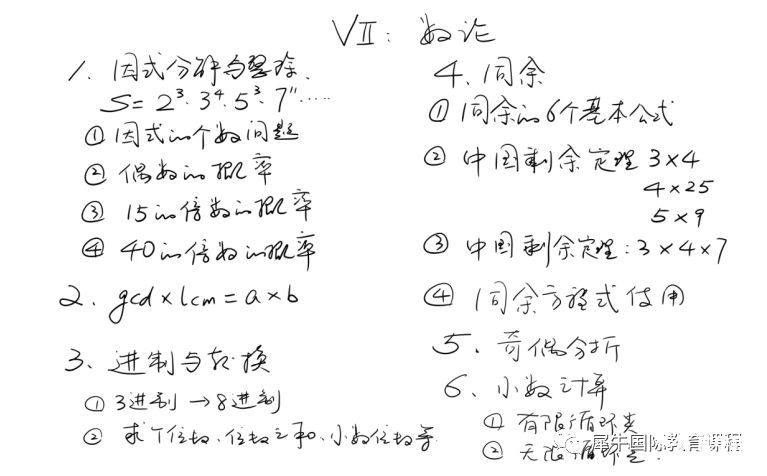 VII: 数论
1. 因式分解与整除.
S = 2³·3⁴·5³·7¹¹······
① 因式的个数问题
② 偶数的概率
③ 15的倍数的概率
④ 40的倍数的概率
2. gcd×lcm=a×b
3. 进制与转换
① 3进制→8进制
② 求个位数、位数之和、小数位数等
4. 同余
① 同余的6个基本公式
② 中国剩余定理 3×4
4×25
5×9
③ 中国剩余定理:3×4×7
④ 同余方程式使用
5. 奇偶分析
6. 小数计算
① 有限循环类
② 无限循环类.
犀牛国际教育课程